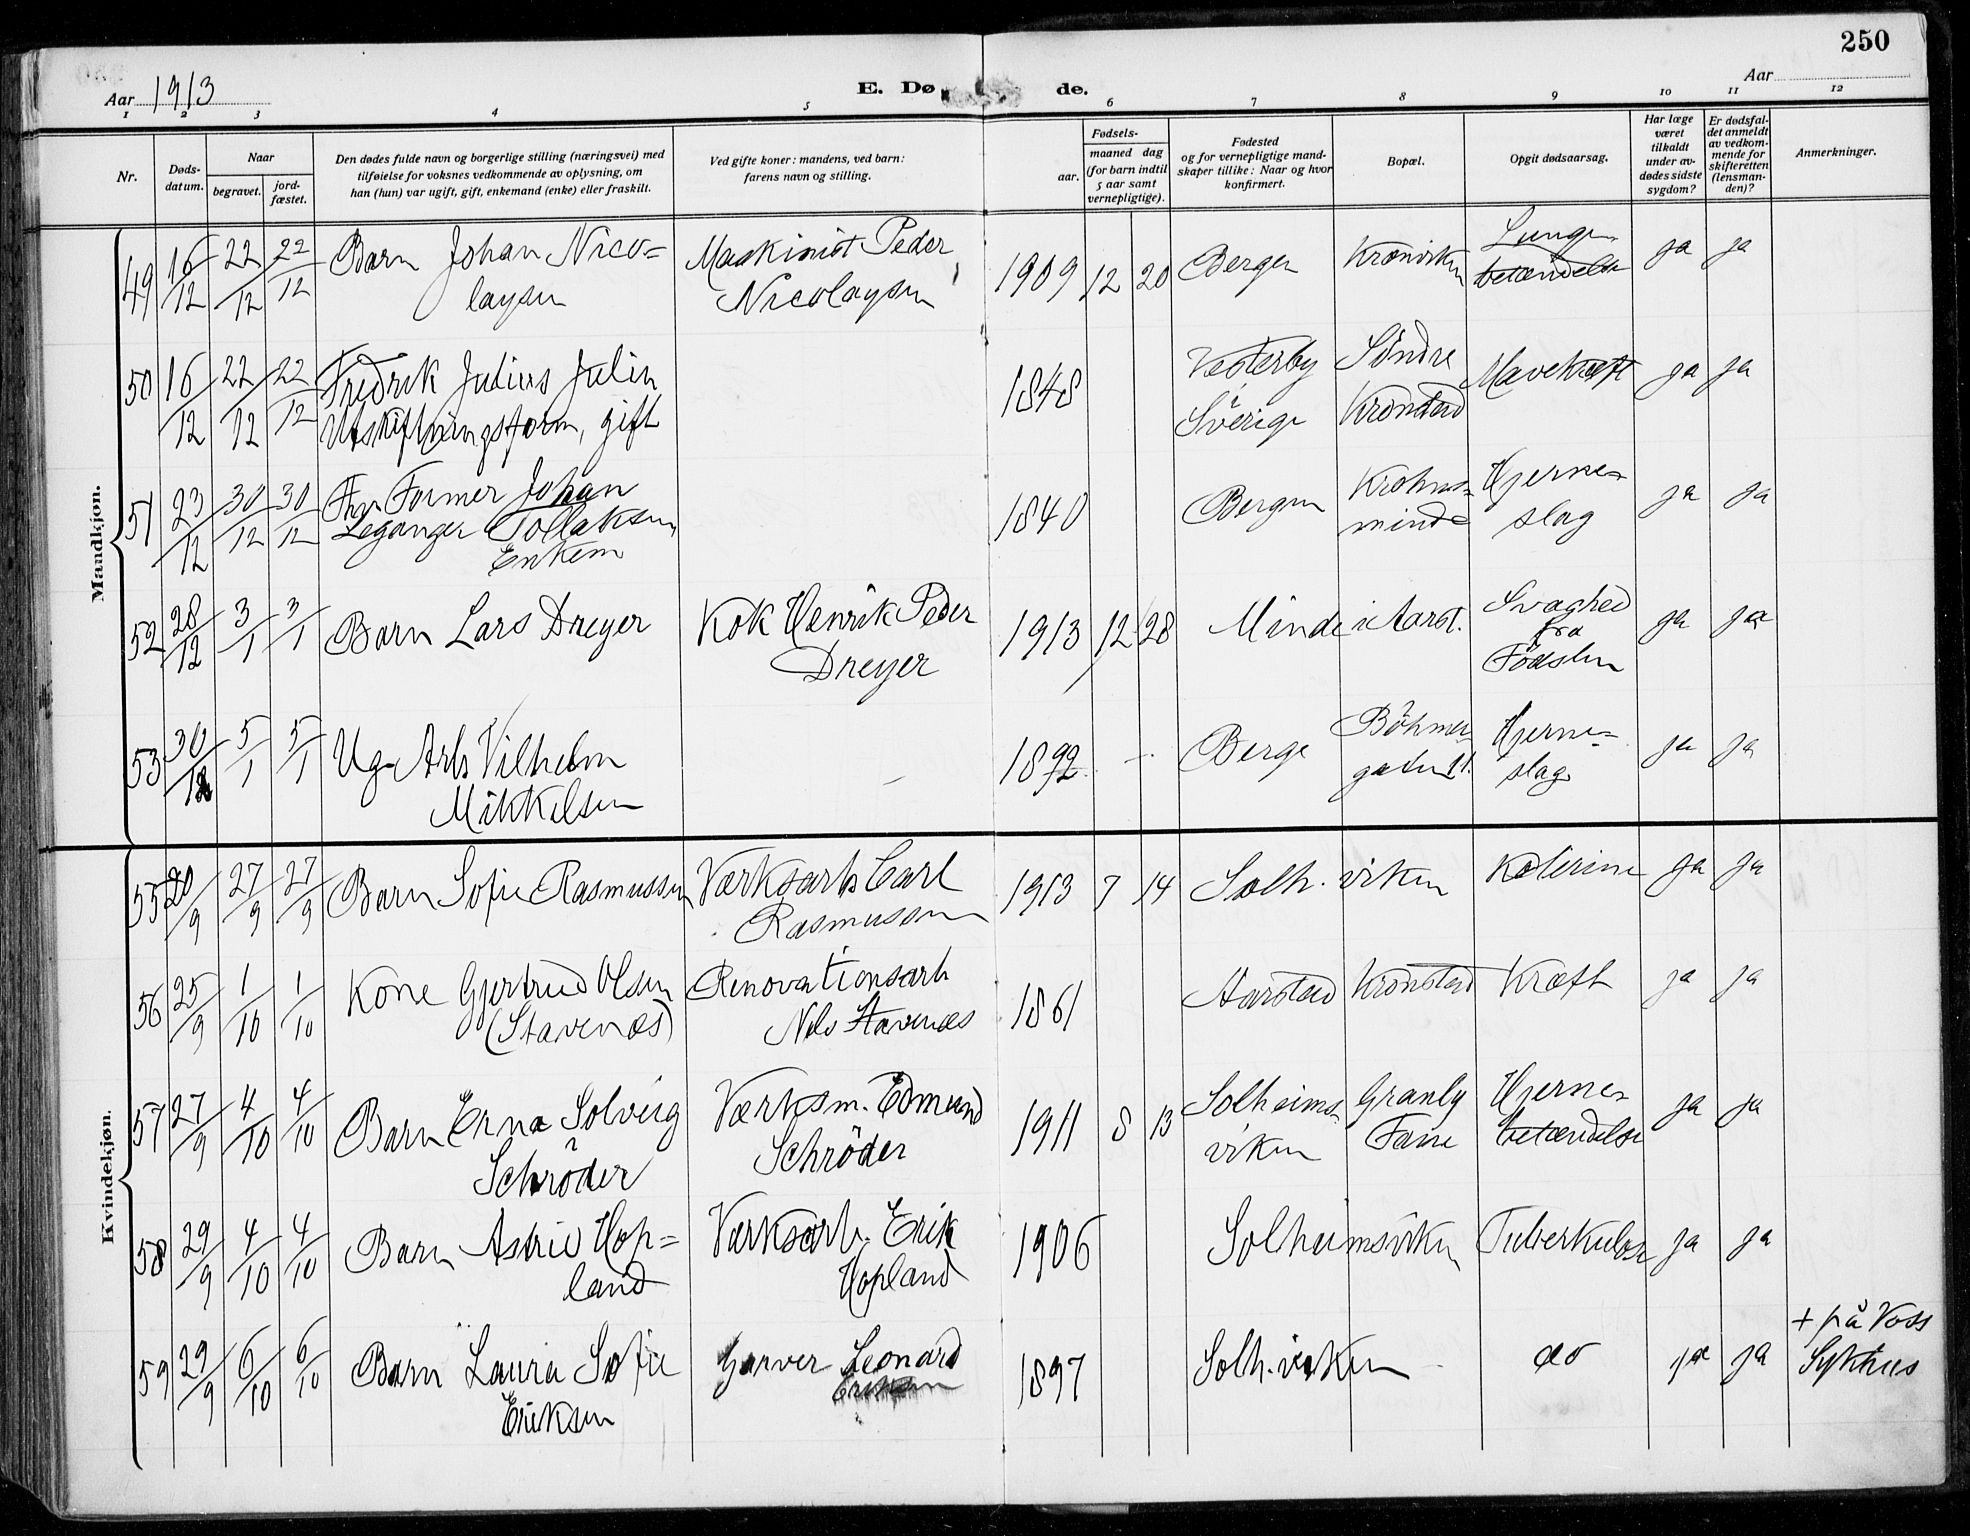 250
Aar 1913
E. Dø de.
Aar
1 2 3 4 5 6 7 8 9 10 11 12
Nr.
Døds-
datum.
Naar
begravet.
jord-
fæstet.
Den dødes fulde navn og borgerlige stilling (næringsvei) med
tilføielse for voksnes vedkommende av oplysning, om
han (hun) var ugift, gift, enkemand (enke) eller fraskilt.
Ved gifte koner: mandens, ved barn:
farens navn og stilling.
Fødsels-
aar.
maaned dag
(for barn indtil
5 aar samt
vernepligtige).
Fødested
og for vernepligtige mand-
skaper tillike: Naar og hvor
konfirmert.
Bopæl.
Opgit dødsaarsag.
Har læge
været
tilkaldt
under av-
dødes sidste
sygdom?
Er dødsfal-
det anmeldt
av vedkom-
mende for
skifteretten
(lensman-
den)?
Anmerkninger.
Mandkjøn.
49 16/12 22/12 22/12 Barn Johan Nico=
laysen
Maskinist Peder
Nicolaysen
1909 12 20 Bergen Kronviken
Lunge
betændelse
ja ja
50 16/12 22/12 22/12 Fredrik Julius Julin
Utskiftningsform, gift
1848
Vesterby
Sverige
Söndre
Kronstad
Mavekræft ja ja
51 23/12 30/12 30/12 Former Johan
Leganger Tollaksen
Enkem
1840 Bergen
Krohns-
minde
Hjerne-
slag
ja ja
52 28/12 3/1 3/1 Barn Lars Dreyer
Kok Henrik Peder
Dreyer
1913 12 28 Minde i Aarst.
Svaghed
fra
Födslen
ja ja
53 30/12 5/1 5/1 Ug Arb Vilhelm
Mikkelsen
—
1892. — Berge
Böhmer-
gaten 11.
Hjerne-
slag
ja ja
Kvindekjøn.
55 20/9 27/9 27/9 Barn Sofie Rasmussen
Værksarb Carl
Rasmussen
1913 7 14 Solh. viken Kolerine ja ja
56 25/9 1/10 1/10 Kone Gjertrud Olsen
(Stavenæs)
Renovationsarb
Nels Stavenæs
1861 Aarstad Kronstad Kræft ja ja
57 27/9 4/10 4/10 Barn Erna Solveig
Schröder
Værksm. Edmund
Schröder
1911 8 13
Solheims-
viken
Granly
Fane
Hjerne-
betændelse
ja ja
58 29/9 4/10 4/10 Barn Astrid Hop=
land
Værksarb. Erik
Hopland
1906 Solheimsviken Tuberkulose ja ja
59 29/9 6/10 6/10 Barn Laura Sofie
Eriksen
Garver Leonard
Eriksen
1897 Solh. viken do ja ja
+ på Voss
Sykhus